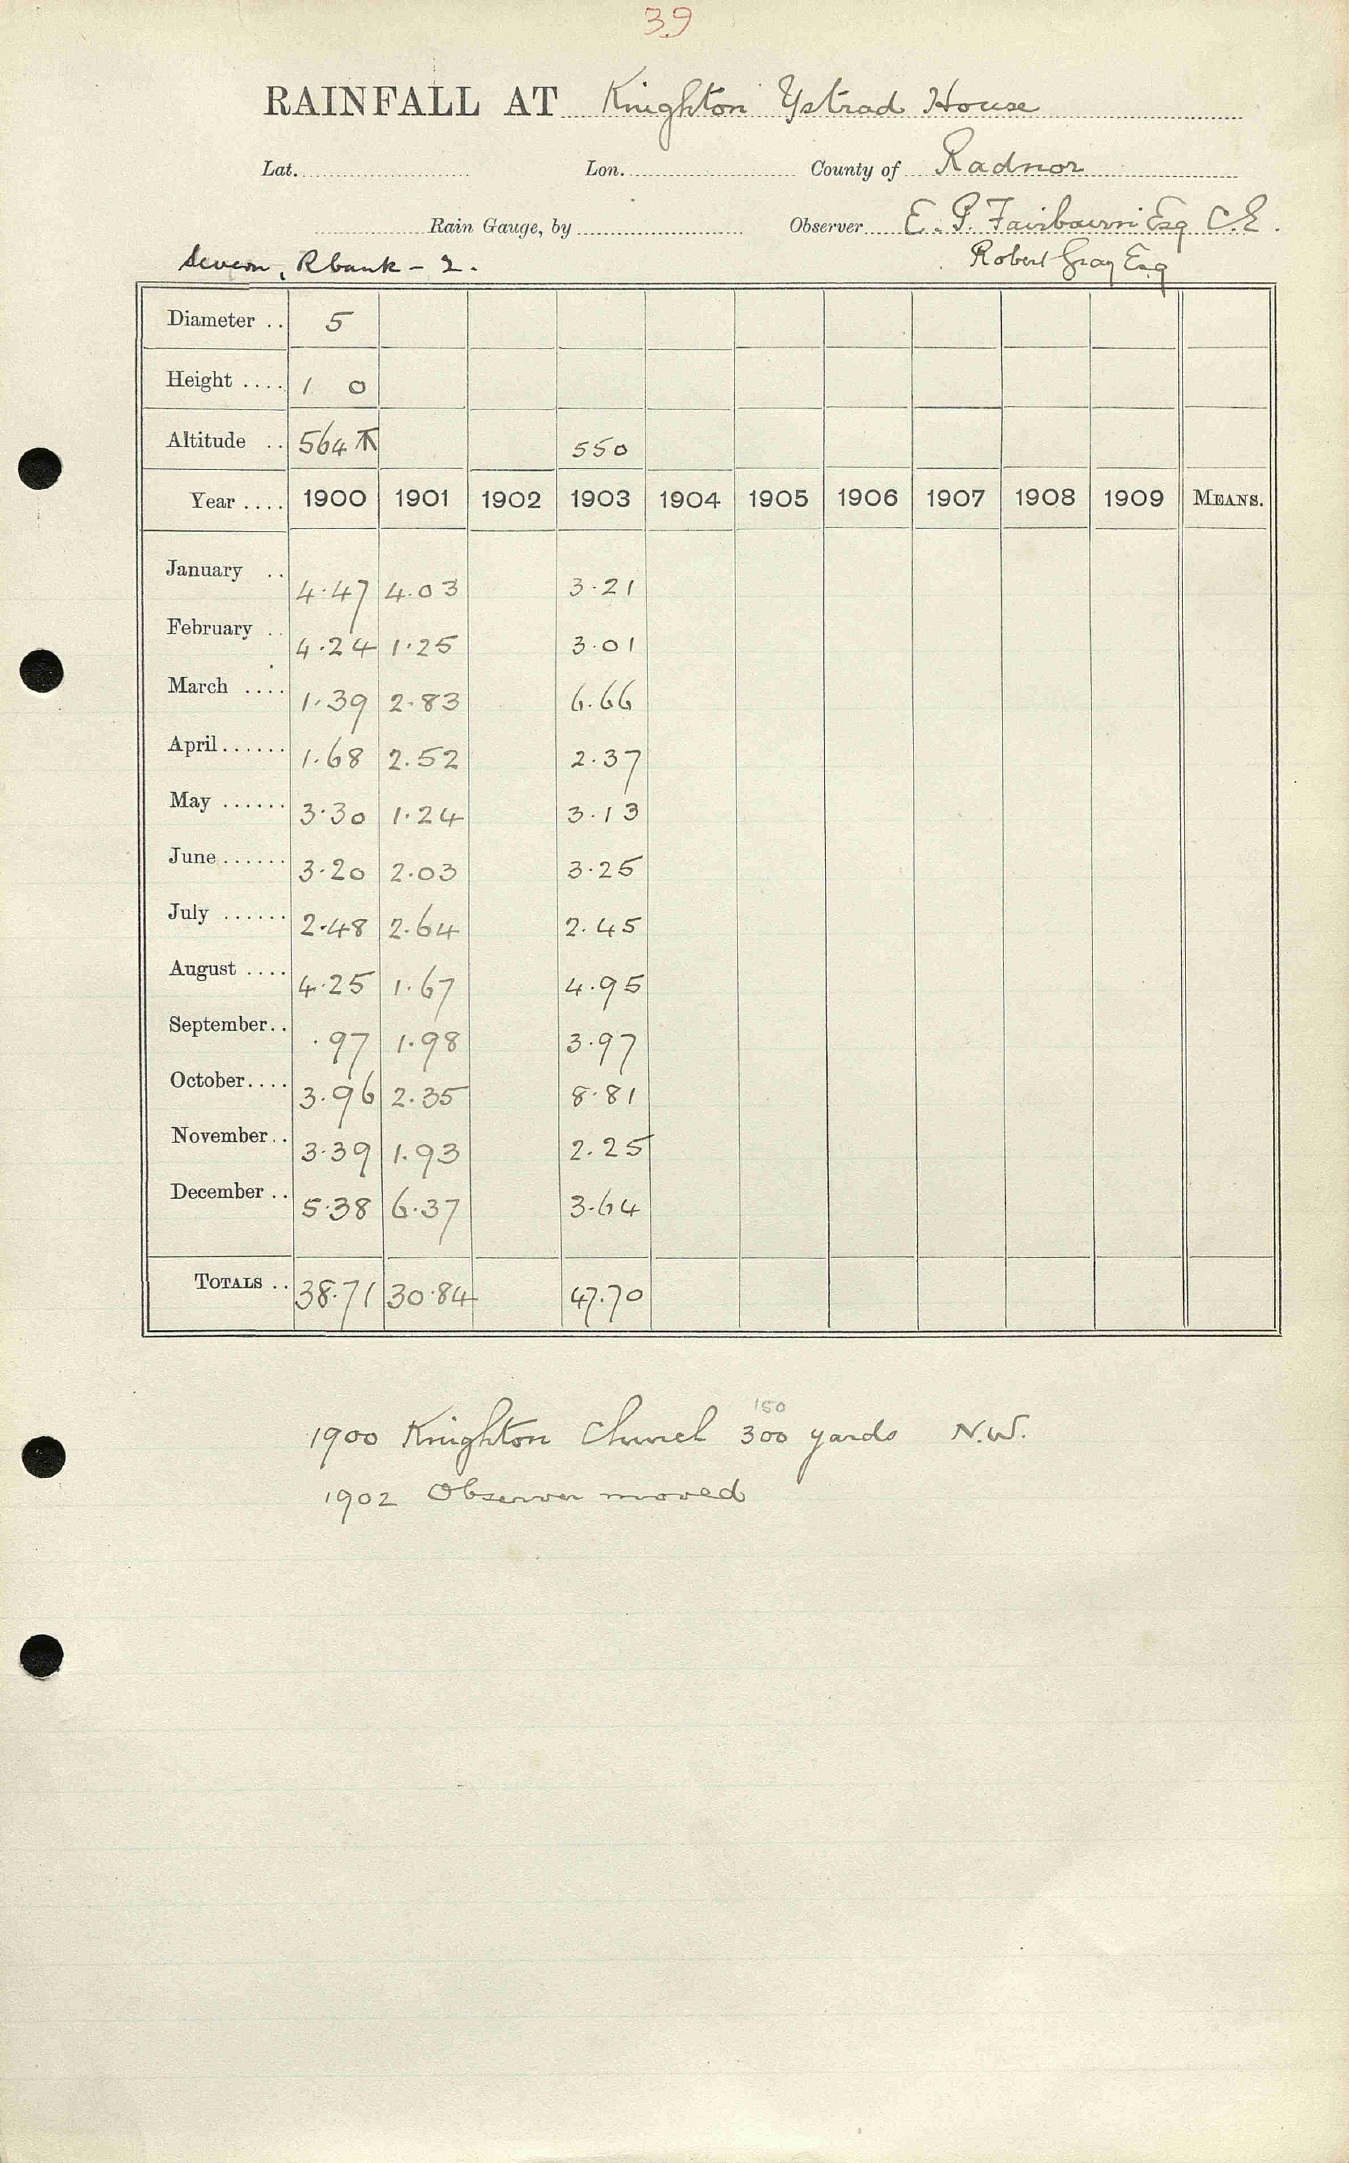 39
RAINFALL AT Knighton Ystrad House
Lat. Lon. County of Radnor
Rain Gauge, by Observer E. P. Fairbairn Esq C.E.
Severn, R bank - 2. Robert Gray Esq
Diameter .. 5
Height .... 1 0
Altitude .. 564 550
Year .... 1900 1901 1902 1903 1904 1905 1906 1907 1908 1909 MEANS.
January .. 4.47 4.03 3.21
February .. 4.24 1.25 3.01
March .... 1.39 2.83 6.66
April...... 1.68 2.52 2.37
May ...... 3.30 1.24 3.13
June...... 3.20 2.03 3.25
July ...... 2.48 2.64 2.45
August .... 4.25 1.67 4.95
September.. .97 1.98 3.97
October.... 3.96 2.35 8.81
November.. 3.39 1.93 2.25
December .. 5.38 6.37 3.64
TOTALS .. 38.71 30.84 47.70
150
1900 Knighton Church 300 yards N.W.
1902 Observer moved